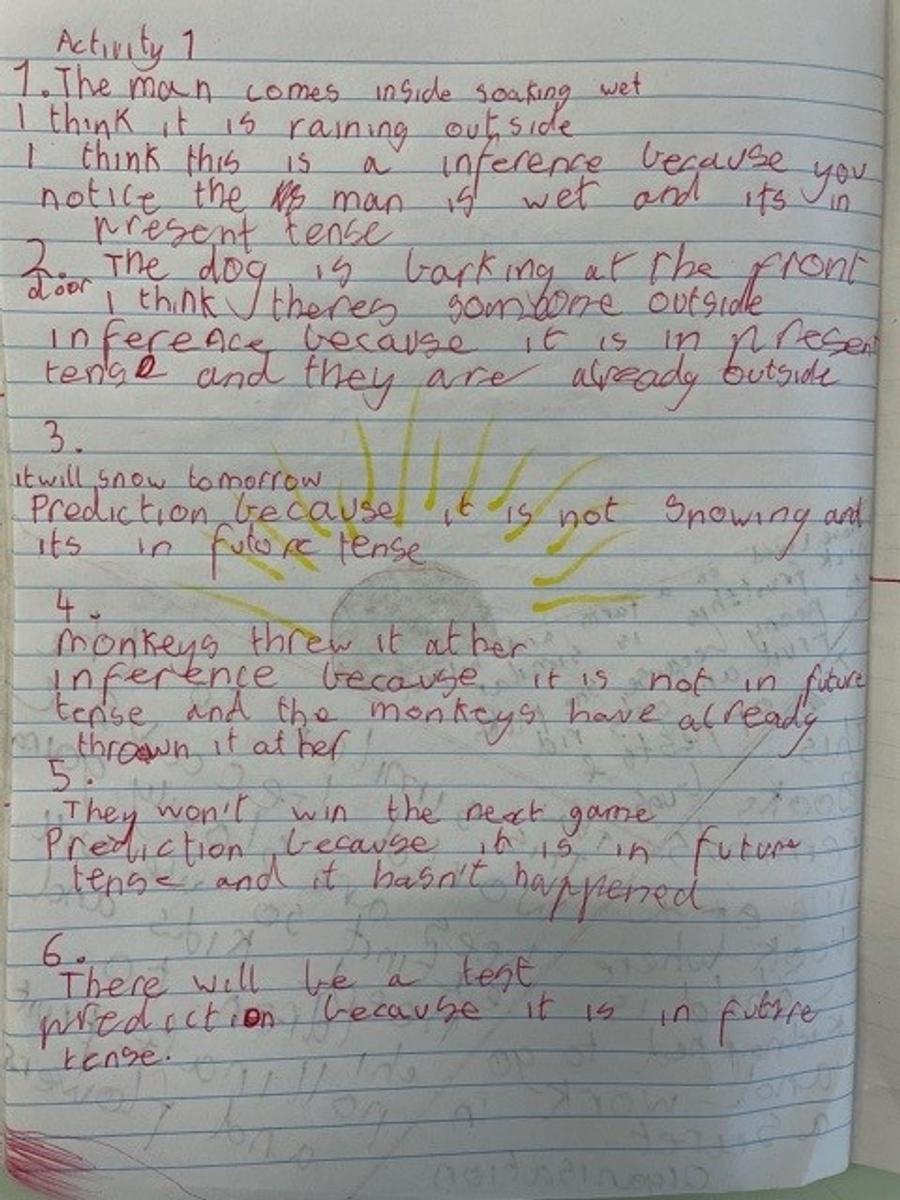 Activity 1
1. The man comes inside soaking wet
I think it is raining outside
I think this is a inference because you
notice the man is wet and its in
present tense
2. The dog is barking at the front
door I think theres somebone outside
inference because it is in present
tense and they are already outside
3.
it will snow tomorrow
Prediction because it is not snowing and
its in future tense
4.
Monkeys threw it at her
inference because it is not in future
tense and the monkeys have already
thrown it at her
5.
They won't win the next game
Prediction because it is in future
tense and it hasn't happened
6.
There will be a test
prediction because it is in future
tense.